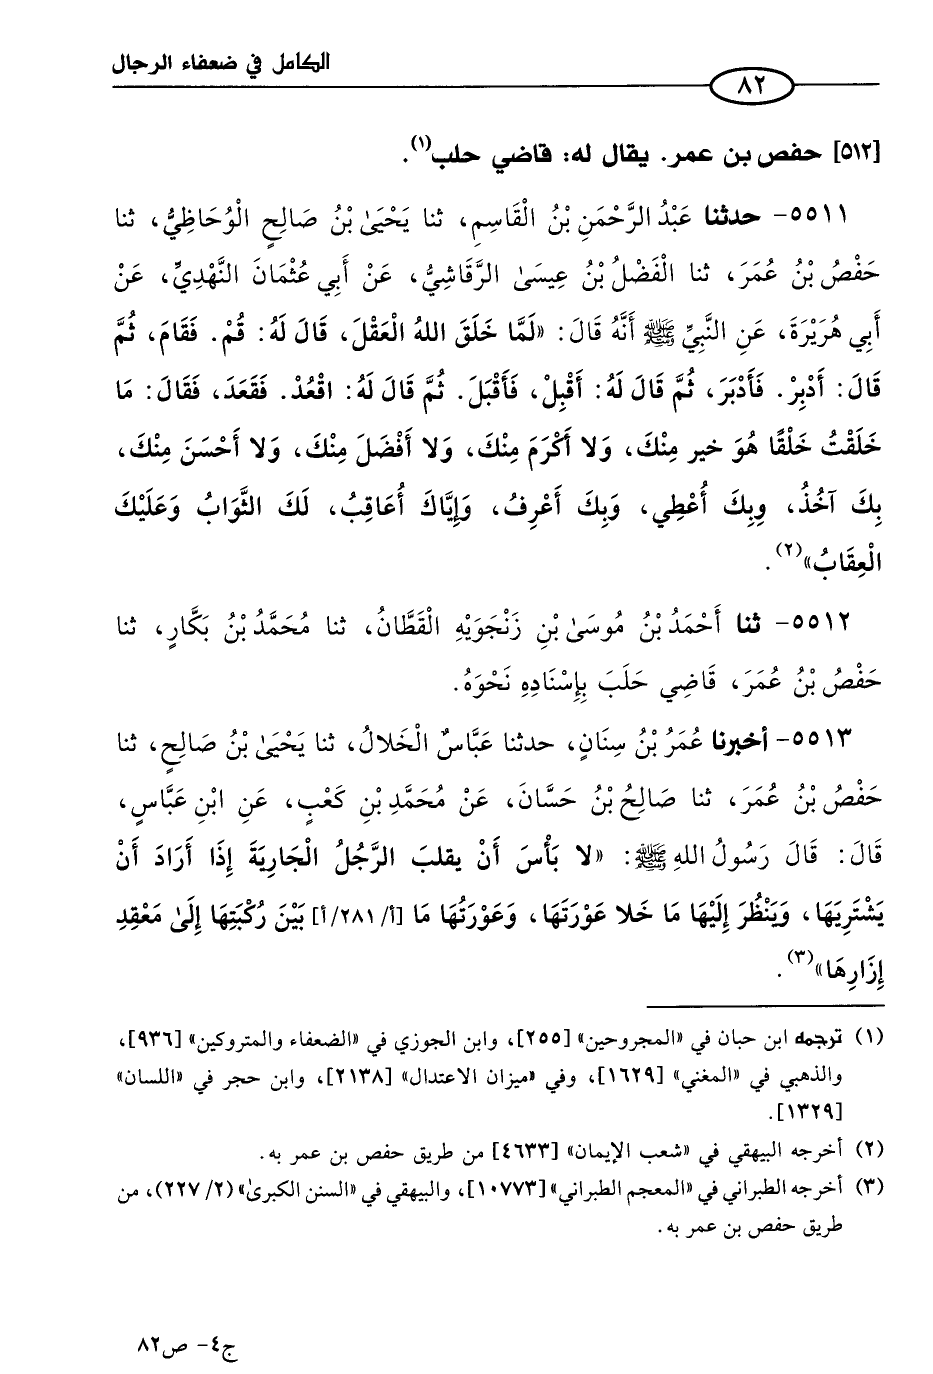 الكامل في ضعفاء الرجال
٨٢
[٥١٢] حفص بن عمر. يقال له: قاضي حلب(١).
٥٥١١- حدثنا عَبْدُ الرَّحْمَنِ بْنُ الْقَاسِمِ، ثنا يَحْيَىٰ بْنُ صَالِحٍ الْوُحَاظِيُّ، ثنا
حَفْصُ بْنُ عُمَرَ، ثنا الْفَضْلُ بْنُ عِيسَىٰ الرَّقَاشِيُّ، عَنْ أَبِي عُثْمَانَ النَّهْدِيِّ، عَنْ
أَبِي هُرَيْرَةَ، عَنِ النَّبِيِّ ﷺ أَنَّهُ قَالَ: «لَمَّا خَلَقَ اللهُ الْعَقْلَ، قَالَ لَهُ: قُمْ. فَقَامَ، ثُمَّ
قَالَ: أَدْبِرْ. فَأَدْبَرَ، ثُمَّ قَالَ لَهُ: أَقْبِلْ، فَأَقْبَلَ. ثُمَّ قَالَ لَهُ: اقْعُدْ. فَقَعَدَ، فَقَالَ: مَا
خَلَقْتُ خَلْقًا هُوَ خير مِنْكَ، وَلا أَكْرَمَ مِنْكَ، وَلا أَفْضَلَ مِنْكَ، وَلا أَحْسَنَ مِنْكَ،
بِكَ آخُذُ، وِبِكَ أُعْطِي، وَبِكَ أَعْرِفُ، وَإِيَّاكَ أُعَاقِبُ، لَكَ الثَّوَابُ وَعَلَيْكَ
الْعِقَابُ»(٢).
٥٥١٢- ثنا أَحْمَدُ بْنُ مُوسَىٰ بْنِ زَنْجَوَيْهِ الْقَطَّانُ، ثنا مُحَمَّدُ بْنُ بَكَّارٍ، ثنا
حَفْصُ بْنُ عُمَرَ، قَاضِي حَلَبَ بِإِسْنَادِهِ نَحْوَهُ.
٥٥١٣- أخبرنا عُمَرُ بْنُ سِنَانٍ، حدثنا عَبَّاسٌ الْخَلالُ، ثنا يَحْيَىٰ بْنُ صَالِحٍ، ثنا
حَفْصُ بْنُ عُمَرَ، ثنا صَالِحُ بْنُ حَسَّانَ، عَنْ مُحَمَّدِ بْنِ كَعْبٍ، عَنِ ابْنِ عَبَّاسٍ،
قَالَ: قَالَ رَسُولُ اللهِ ﷺ: «لا بَأْسَ أَنْ يقلبَ الرَّجُلُ الْجَارِيَةَ إِذَا أَرَادَ أَنْ
يَشْتَرِيَهَا، وَيَنْظُرَ إِلَيْهَا مَا خَلا عَوْرَتَهَا، وَعَوْرَتُهَا مَا [أ/ ٢٨١/ أ] بَيْنَ رُكْبَتِهَا إِلَىٰ مَعْقِدِ
إِزَارِهَا»(٣).
(١) ترجمه ابن حبان في «المجروحين» [٢٥٥]، وابن الجوزي في «الضعفاء والمتروكين» [٩٣٦]،
والذهبي في «المغني» [١٦٢٩]، وفي «ميزان الاعتدال» [٢١٣٨]، وابن حجر في «اللسان»
[١٣٢٩].
(٢) أخرجه البيهقي في «شعب الإيمان» [٤٦٣٣] من طريق حفص بن عمر به.
(٣) أخرجه الطبراني في «المعجم الطبراني» [١٠٧٧٣]، والبيهقي في «السنن الكبرىٰ» (٢/ ٢٢٧)، من
طريق حفص بن عمر به.
ج٤- ص٨٢